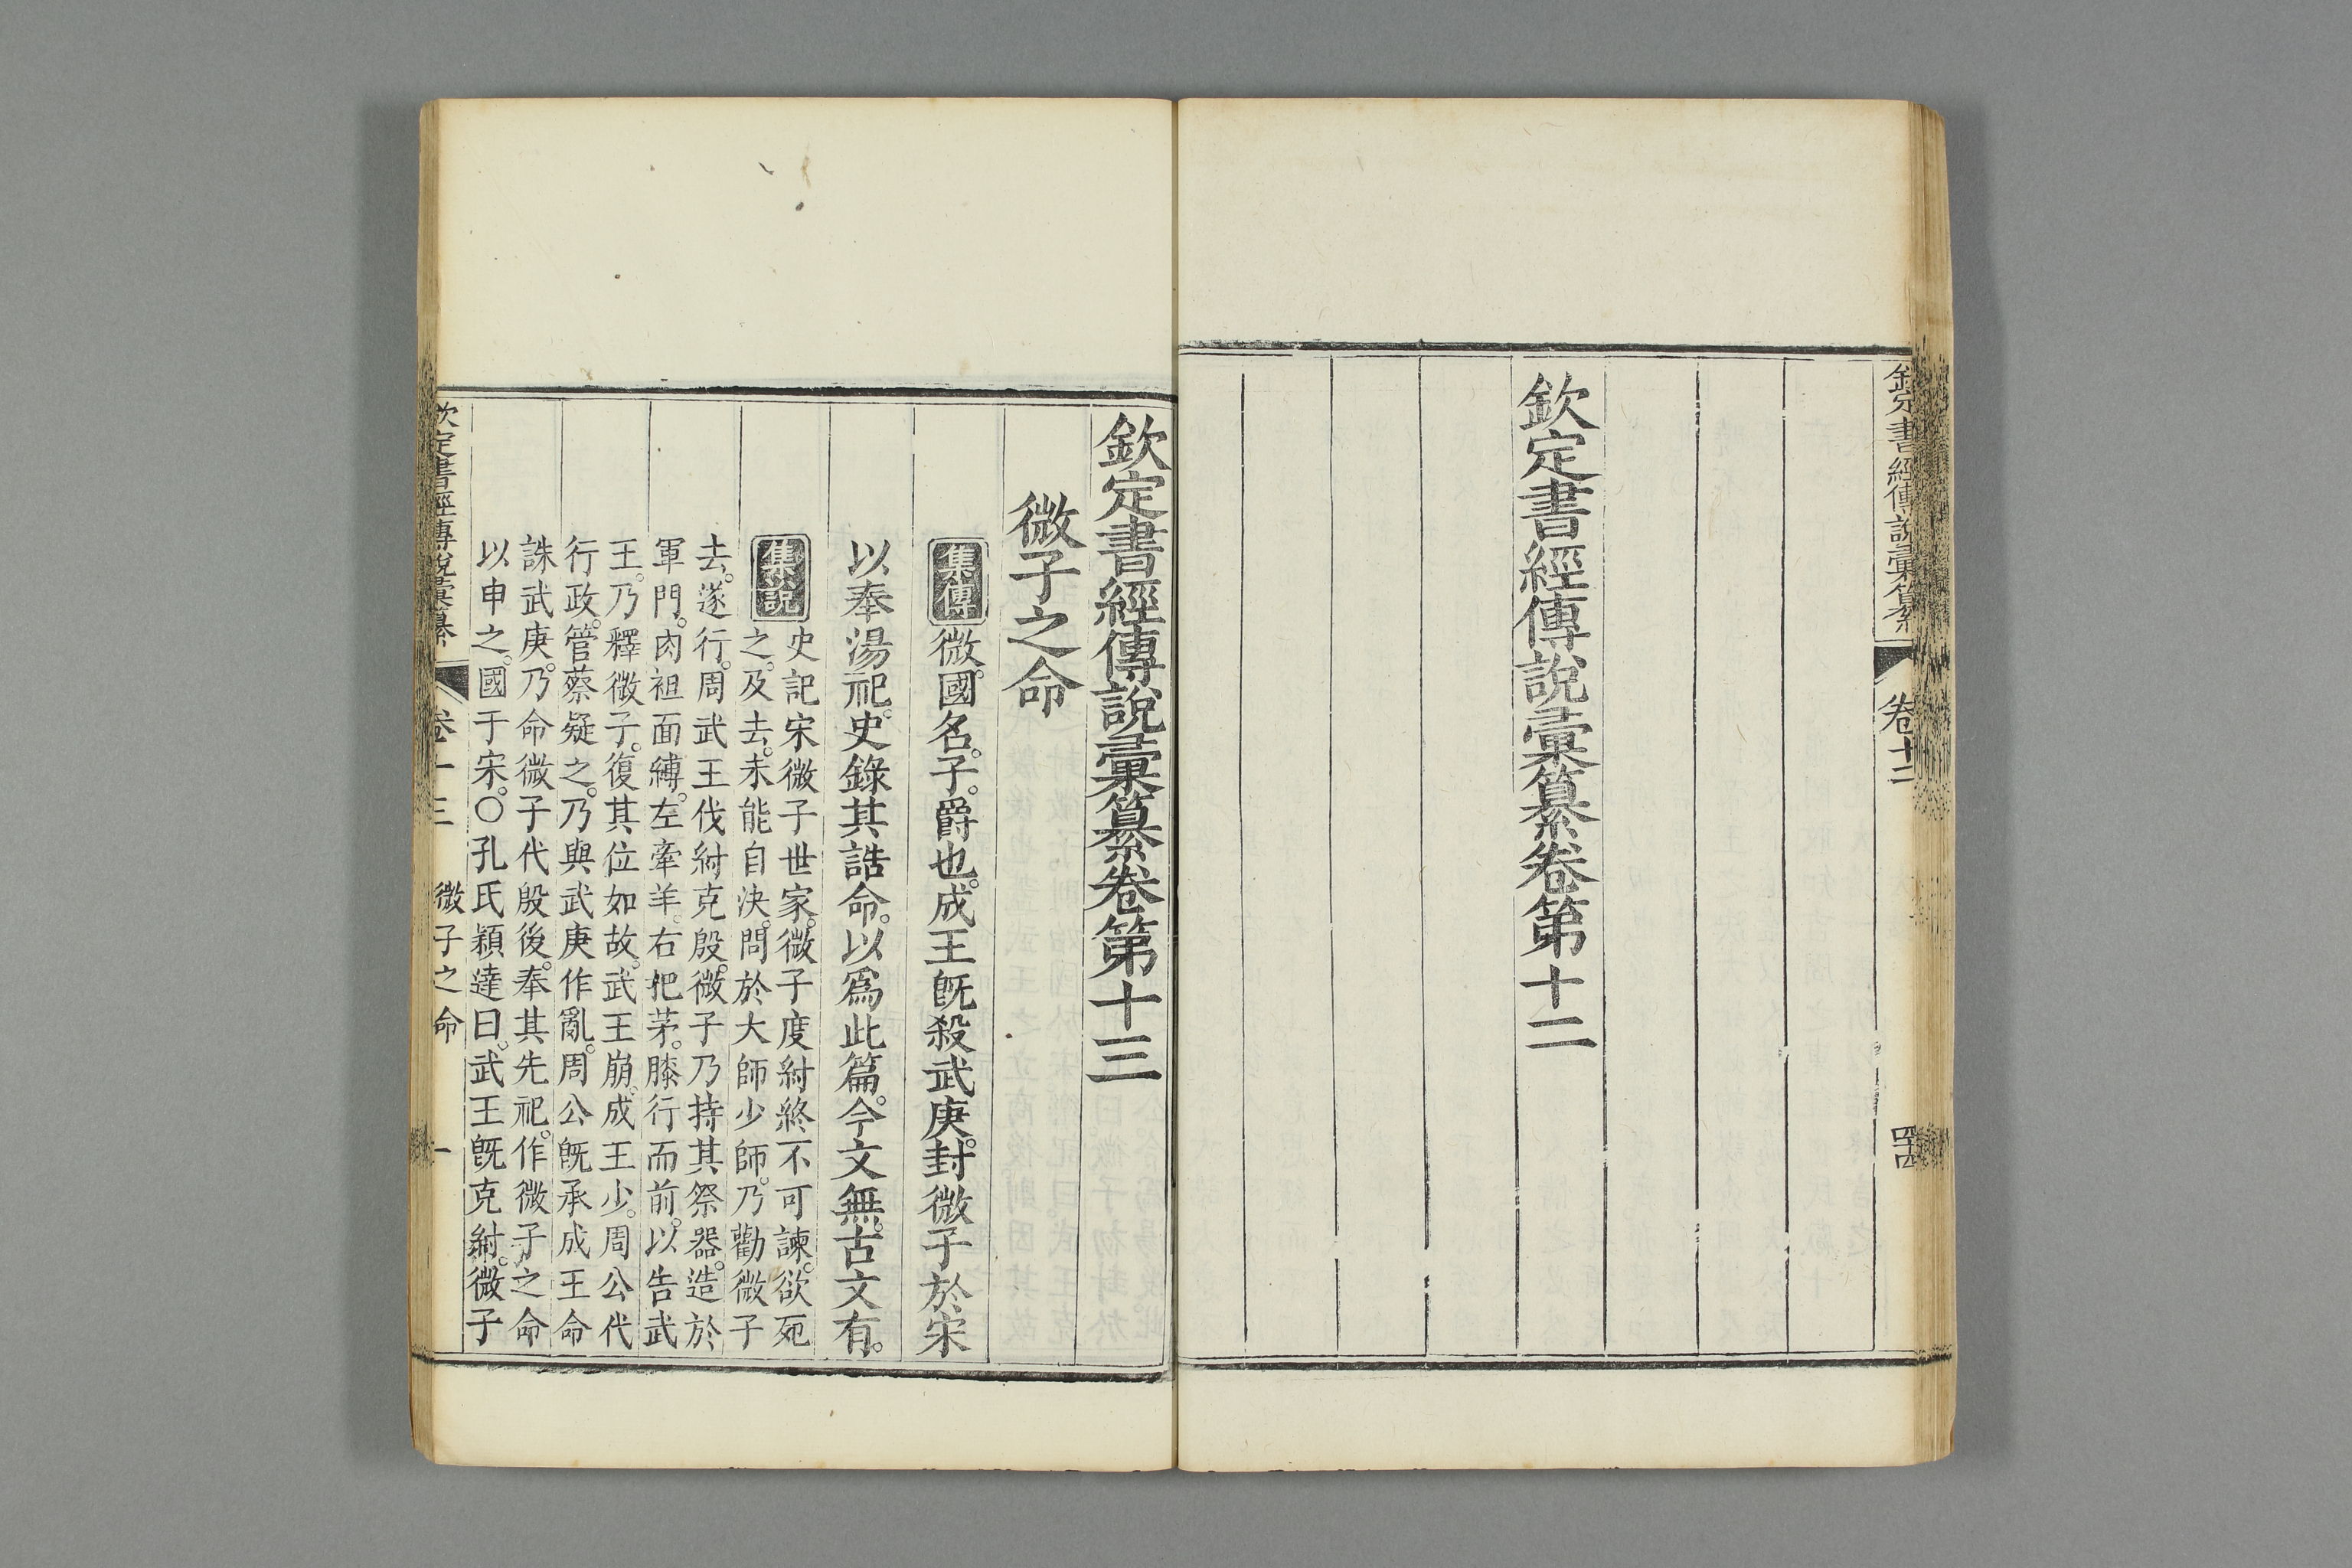 欽定書經傳說彙纂
卷十二
四十四
欽定書經傳說彙纂卷第十二
欽定書經傳說彙纂卷第十三
微子之命
集傳 微。國名。子。爵也。成王旣殺武庚。封微子於宋
以奉湯祀。史錄其誥命。以爲此篇。今文無。古文有。
集說 史記宋微子世家。微子度紂終不可諫。欲死
之。及去。未能自決。問於大師少師。乃勸微子
去。遂行。周武王伐紂克殷。微子乃持其祭器。造於
軍門。肉袒面縛。左牽羊。右把茅。膝行而前。以告武
王。乃釋微子。復其位如故。武王崩。成王少。周公代
行政。管蔡疑之。乃與武庚作亂。周公旣承成王命
誅武庚。乃命微子代殷後。奉其先祀。作微子之命
以申之。國于宋。○孔氏穎達曰。武王旣克紂。微子
欽定書經傳說彙纂
卷十三
微子之命
一